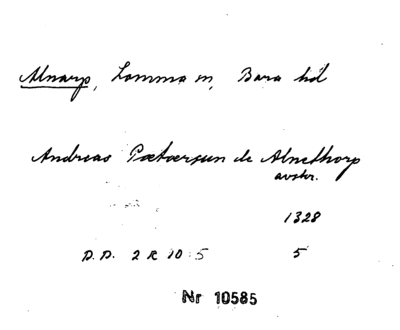 Alnarp, Lomma sn, Bara hd
Andreas Pætærsun de Alnethorp
avskr.
1328
D.D. 2 R 10:5 5
Nr 10585